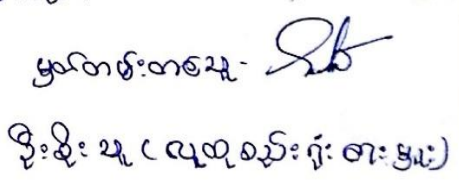 မှတ်တမ်းတင်သူ-
ဦးစိုးသူ (လူထုစည်းရုံးတားမှူး)